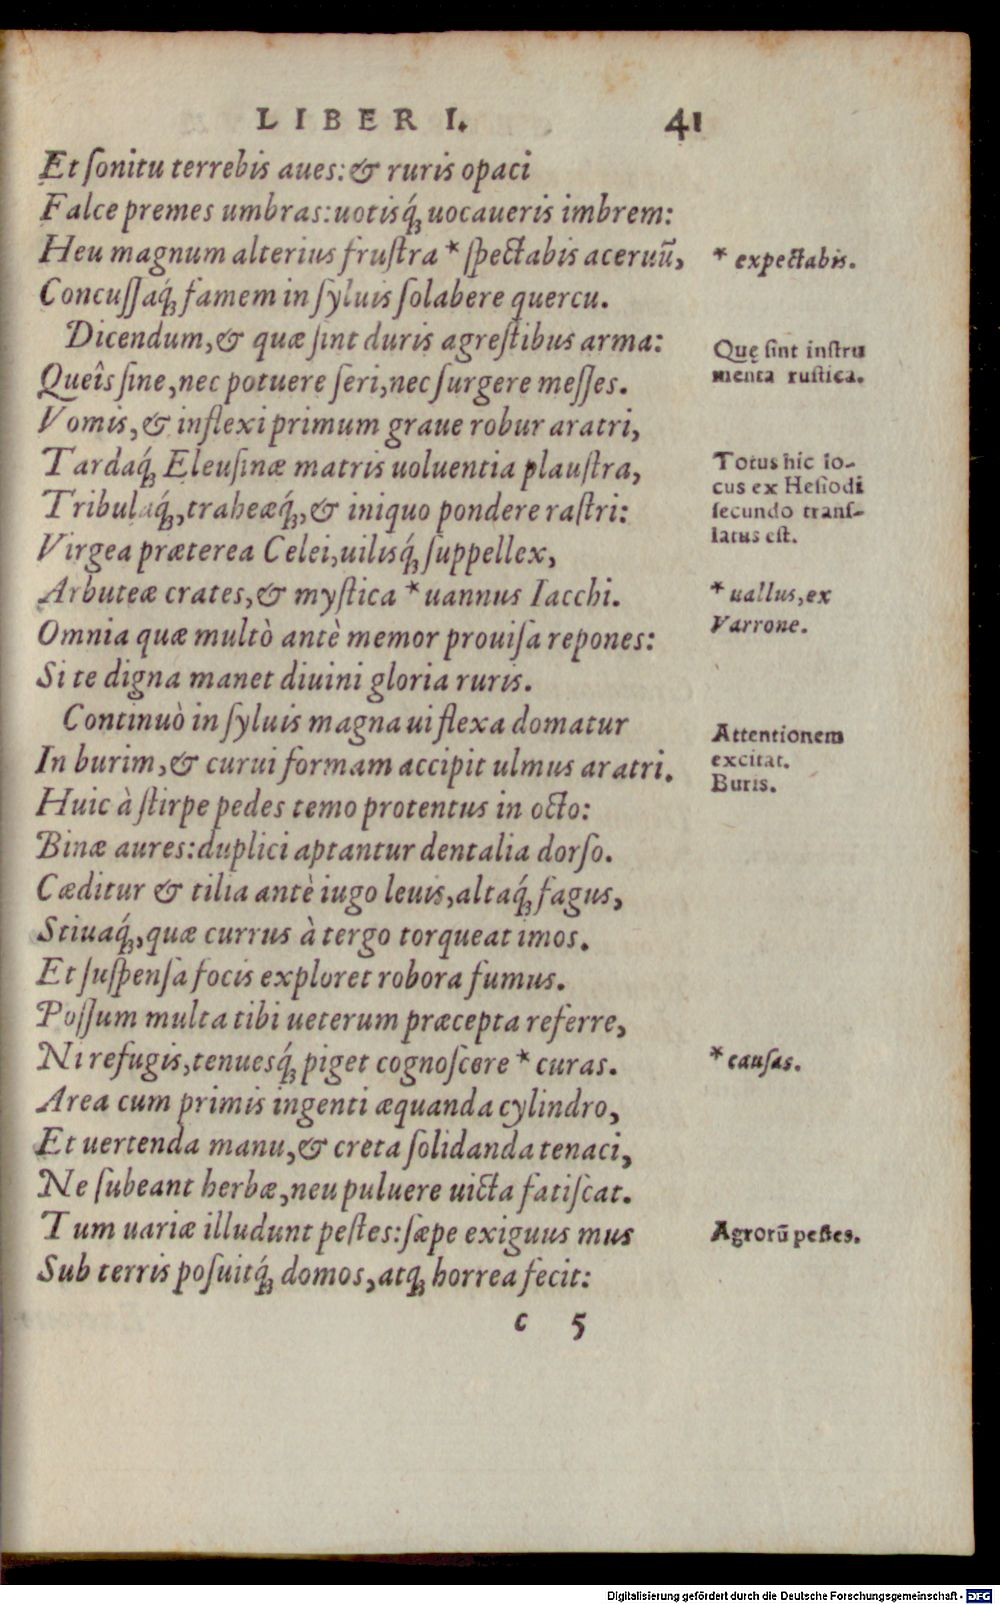 LIBER I. 41
Et ſonitu terrebis aues: & ruris opaci
Falce premes umbras: uotisq́; uocaueris imbrem:
Heu magnum alterius fruſtra * ſpectabis aceruũ,
* expectabis.
Concuſſaq́; famem in ſyluis ſolabere quercu.
Dicendum, & quæ ſint duris agreſtibus arma:
Quę ſint inſtru
menta ruſtica.
Queîs ſine, nec potuere ſeri, nec ſurgere meſſes.
Vomis, & inflexi primum graue robur aratri,
Tardaq́; Eleuſinæ matris uoluentia plauſtra,
Totus hic lo-
cus ex Heſiodi
ſecundo tranſ-
latus eſt.
Tribulaq́;, traheæq́;, & iniquo pondere raſtri:
Virgea præterea Celei, uilisq́; ſuppellex,
Arbuteæ crates, & myſtica * uannus Iacchi.
* uallus, ex
Varrone.
Omnia quæ multò antè memor prouiſa repones:
Si te digna manet diuini gloria ruris.
Continuò in ſyluis magna ui flexa domatur
Attentionem
excitat.
Buris.
In burim, & curui formam accipit ulmus aratri.
Huic à ſtirpe pedes temo protentus in octo:
Binæ aures: duplici aptantur dentalia dorſo.
Cæditur & tilia antè iugo leuis, altaq́; fagus,
Stiuaq́;, quæ currus à tergo torqueat imos.
Et ſuſpenſa focis exploret robora fumus.
Poſſum multa tibi ueterum præcepta referre,
Ni refugis, tenuesq́; piget cognoſcere * curas.
* cauſas.
Area cum primis ingenti æquanda cylindro,
Et uertenda manu, & creta ſolidanda tenaci,
Ne ſubeant herbæ, neu puluere uicta fatiſcat.
Tum uariæ illudunt peſtes: ſæpe exiguus mus
Agrorũ peſtes.
Sub terris poſuitq́; domos, atq; horrea fecit:
c 5
Digitalisierung gefördert durch die Deutsche Forschungsgemeinschaft - DFG